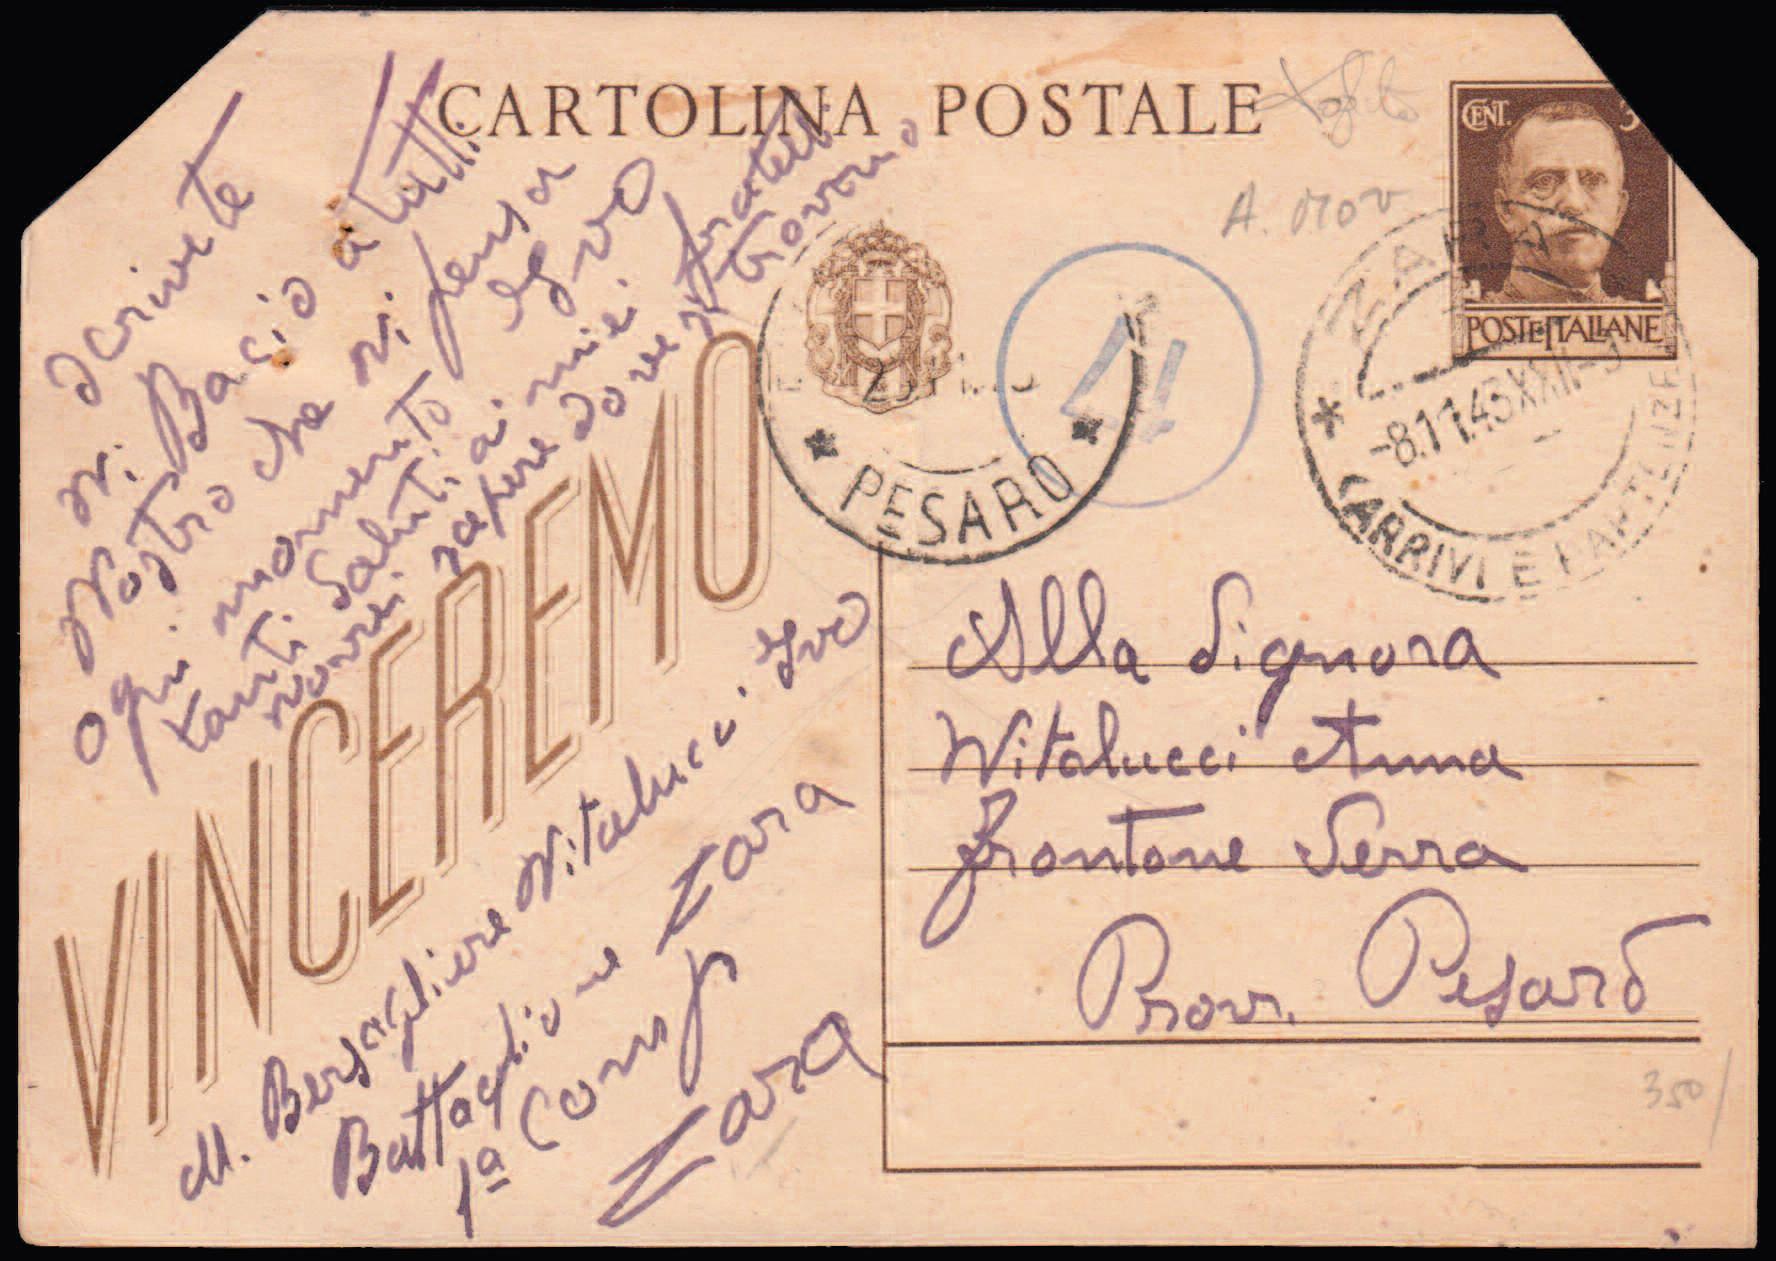 CARTOLINA POSTALE
CENT. 3
POSTE ITALIANE
A. Nov
ZARA
-8.11.43 XXII-9
* ARRIVI E PARTENZE
* PESARO *
4
scrivete
Vi Bacio a tutti
Vostro che vi pensa
ogni momento Ivo
tanti Saluti ai miei fratelli
vorrei sapere dove si trovano
VINCEREMO
M. Bersagliere Vitalucci Ivo
Battaglione Zara
1ª Comp
Zara
Alla Signora
Vitalucci Anna
Frontone Serra
Prov. Pesaro
350/